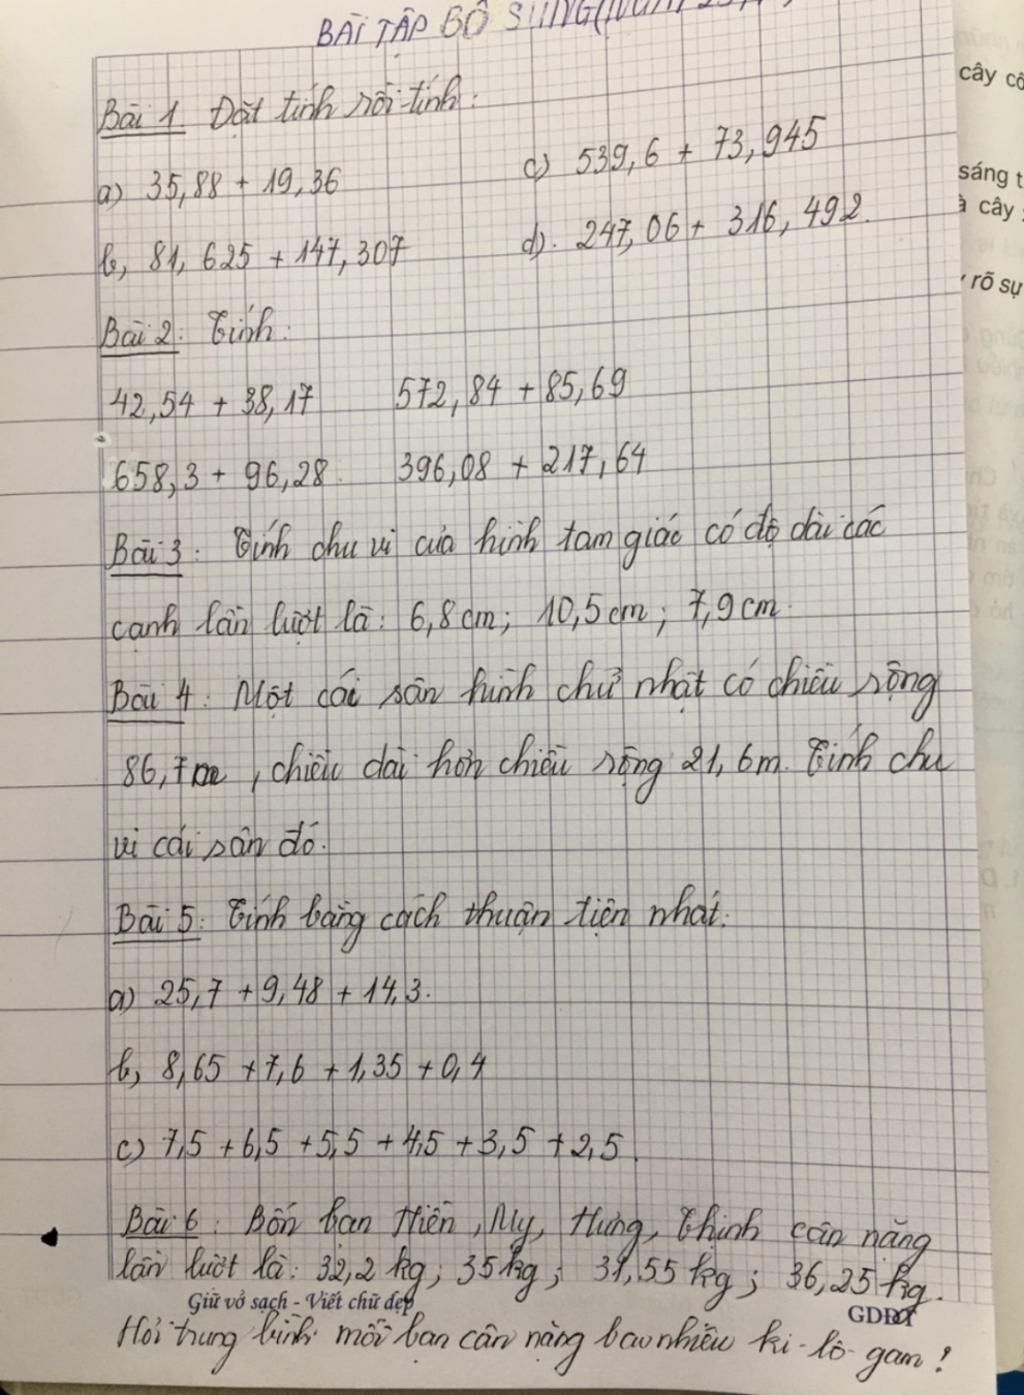 BÀI TẬP BỔ SUNG
Bài 1. Đặt tính rồi tính:
a) 35,88 + 19,36
c) 539,6 + 73,945
b, 81,625 + 147,307
d). 247,06 + 316,492.
Bài 2: Tính:
42,54 + 38,17 572,84 + 85,69
658,3 + 96,28. 396,08 + 217,64
Bài 3: Tính chu vi của hình tam giác có độ dài các
cạnh lần lượt là: 6,8cm; 10,5cm; 7,9cm.
Bài 4: Một cái sân hình chữ nhật có chiều rộng
86,7m, chiều dài hơn chiều rộng 21,6m. Tính chu
vi cái sân đó.
Bài 5: Tính bằng cách thuận tiện nhất.
a) 25,7 + 9,48 + 14,3.
b, 8,65 + 7,6 + 1,35 + 0,4
c) 7,5 + 6,5 + 5,5 + 4,5 + 3,5 + 2,5.
Bài 6: Bốn bạn Hiền, My, Hưng, Thịnh cân nặng
lần lượt là: 32,2kg; 35kg; 31,55kg; 36,25kg.
Giữ vở sạch - Viết chữ đẹp
GDĐT
Hỏi trung bình mỗi bạn cân nặng bao nhiêu ki-lô-gam?
cây cô
sáng t
à cây
rõ sự